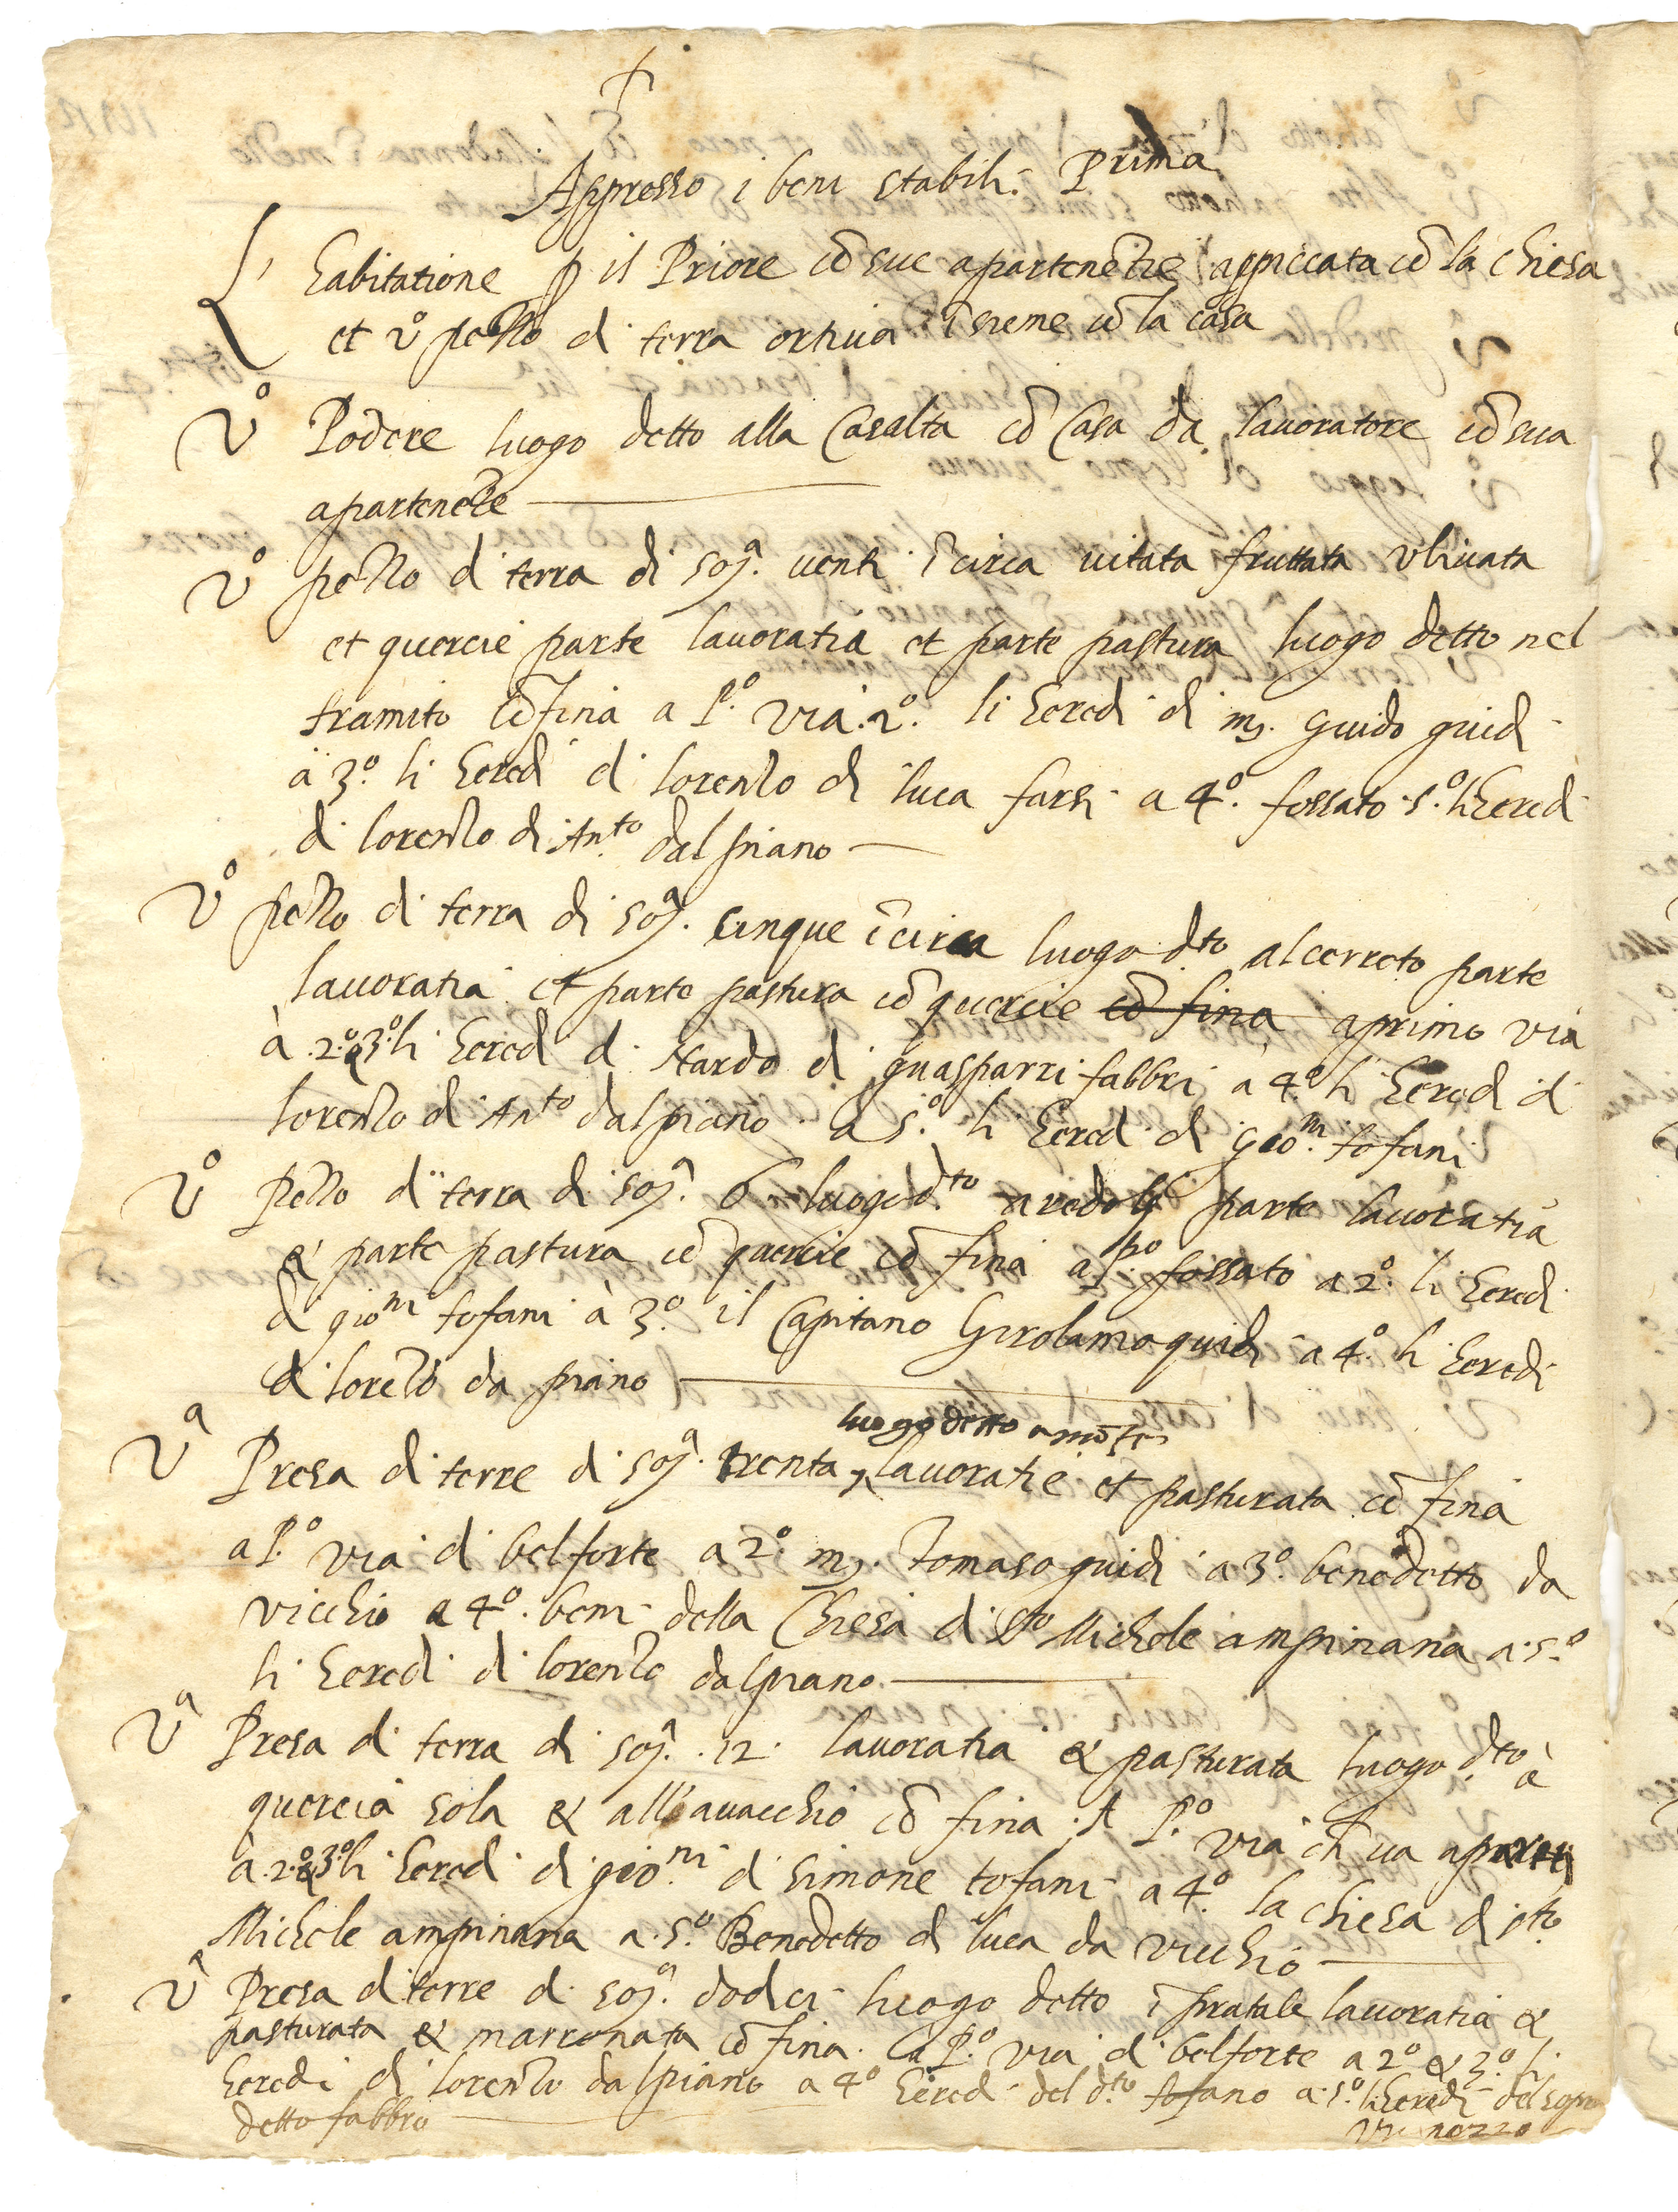 Appresso i beni stabili. Prima
habitatione p il Priore cō sue apartenētie appiccata cō la chiesa
et vº pezzo di terra ortiua īsieme cō la casa
Vº Podere luogo detto alla Casalta cō Casa da lauoratore cō sua
apartenētie
Vº pezzo di terra di soȷ.ª uenti ī circa uitata fruttata vliuata
et quercie parte lauoratia et parte pastura luogo detto nel
tramito cōfina a P.º via. 2º. li heredi di mȷ. Guido guidi
a 3.º li heredi di lorenzo di luca farsi a 4º. fossato 5.º li heredi
di lorenzo di Ant.º dal piano
Vº pezzo di terra di soȷ.ª cinque ī circa luogo d.to al cerreto parte
lauoratia et parte pastura cō quercie cō fina a primo via
à 2.º & 3.º li heredi di Nardo di guasparri fabbri a 4.º li heredi di
lorenzo di Ant.º dal piano a 5.º li heredi di gio.ni tofani
Vº pezzo di terra di soȷ.ª 6 luogo d.to parte lauoratia
& parte pastura cō quercie cō fina a p.º fossato a 2º. li heredi
di gio.ni tofani à 3.º il Capitano Girolamo guidi a 4.º li heredi
di lorēzo da piano
luogo detto a mōte
Vª Presa di terre di soȷ.ª trenta, lauoratie et pasturata cō fina
a P.º via di belforte a 2.º mȷ. Tomaso guidi a 3.º benedetto da
vicchio a 4º. beni della Chiesa di S.to Michele ampinana a 5.º
li heredi di lorenzo dal piano
Vª Presa di terra di soȷ.ª 12. lauoratia & pasturata luogo d.to à
quercia sola & all'auacchio cō fina. A P.º via ch ua
à 2.º & 3.º li heredi di gio.ni di simone tofani a 4.º la chiesa di s.to
Michele ampinana a 5.º Benedetto di luca da vicchio
Vª Presa di terre di soȷ.ª dodici luogo detto ī pratale lauoratia &
pasturata & marronata cō fina. a P.º via di belforte a 2º & 3.º li
heredi di lorenzo dal piano a 4º heredi del d.to tofano a 5.º li heredi del
detto fabbro